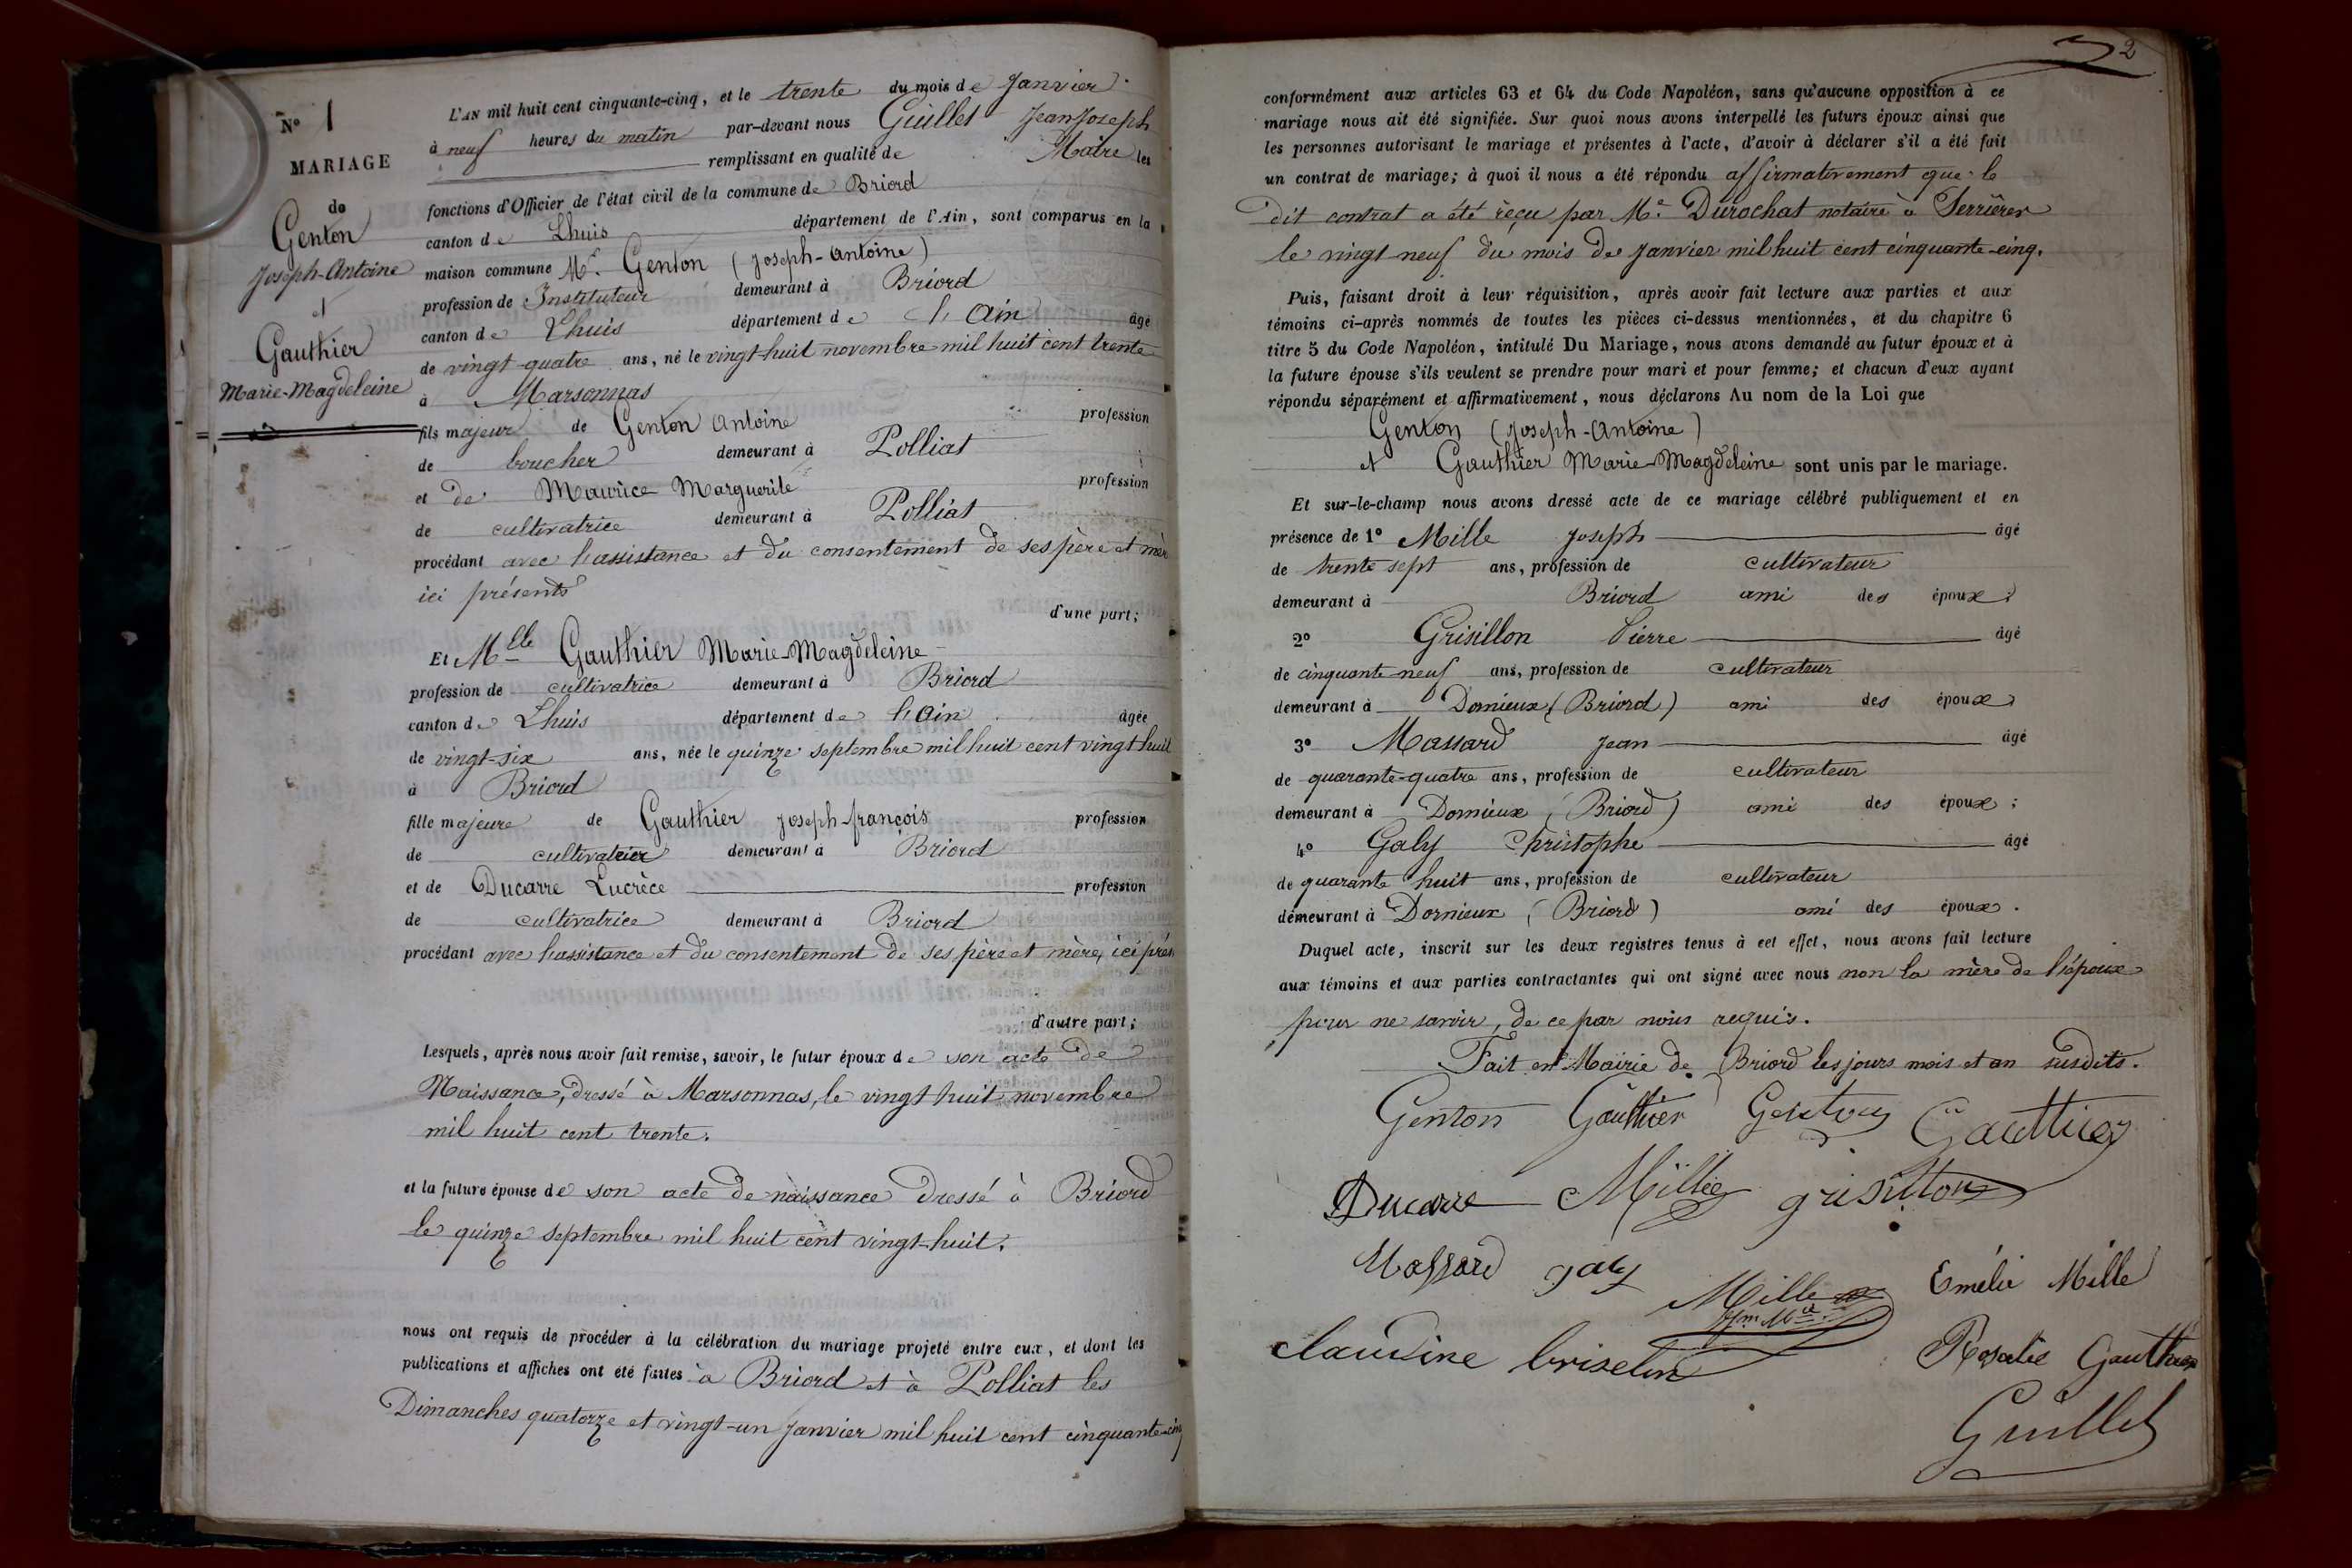 N° 1
MARIAGE
de
Genton
Joseph-Antoine
et
Gauthier
Marie-Magdeleine
L'AN mil huit cent cinquante-cinq, et le trente du mois de Janvier
à neuf heures du matin par-devant nous Guillet Jean Joseph
remplissant en qualité de Maire les
fonctions d'Officier de l'état civil de la commune de Briord
canton de Lhuis département de l'Ain, sont comparus en la
maison commune Mr. Genton (Joseph-Antoine)
profession de Instituteur demeurant à Briord
canton de Lhuis département de l'Ain âgé
de vingt-quatre ans, né le vingt-huit novembre mil huit cent trente
à Marsonnas
fils majeur de Genton Antoine profession
de boucher demeurant à Polliat
et de Maurice Marguerite profession
de cultivatrice demeurant à Polliat
procédant avec l'assistance et du consentement de ses père et mère
ici présents
d'une part;
Et Mlle Gauthier Marie-Magdeleine
profession de cultivatrice demeurant à Briord
canton de Lhuis département de l'Ain âgée
de vingt-six ans, née le quinze septembre mil huit cent vingt huit
à Briord
fille majeure de Gauthier Joseph-françois profession
de cultivateur demeurant à Briord
et de Ducarre Lucrèce profession
de cultivatrice demeurant à Briord
procédant avec l'assistance et du consentement de ses père et mère, ici prés
d'autre part;
Lesquels, après nous avoir fait remise, savoir, le futur époux de son acte de
Naissance, dressé à Marsonnas, le vingt huit novembre
mil huit cent trente.
et la future épouse de son acte de naissance dressé à Briord
le quinze septembre mil huit cent vingt-huit.
nous ont requis de procéder à la célébration du mariage projeté entre eux, et dont les
publications et affiches ont été faites à Briord et à Polliat les
Dimanches quatorze et vingt-un Janvier mil huit cent cinquante-cinq
2
conformément aux articles 63 et 64 du Code Napoléon, sans qu'aucune opposition à ce
mariage nous ait été signifiée. Sur quoi nous avons interpellé les futurs époux ainsi que
les personnes autorisant le mariage et présentes à l'acte, d'avoir à déclarer s'il a été fait
un contrat de mariage; à quoi il nous a été répondu affirmativement que le
dit contrat a été reçu par Me. Durochat notaire à Serrières
le vingt-neuf du mois de Janvier mil huit cent cinquante-cinq.
Puis, faisant droit à leur réquisition, après avoir fait lecture aux parties et aux
témoins ci-après nommés de toutes les pièces ci-dessus mentionnées, et du chapitre 6
titre 5 du Code Napoléon, intitulé Du Mariage, nous avons demandé au futur époux et à
la future épouse s'ils veulent se prendre pour mari et pour femme; et chacun d'eux ayant
répondu séparément et affirmativement, nous déclarons Au nom de la Loi que
Genton (Joseph-Antoine)
et Gauthier Marie-Magdeleine sont unis par le mariage.
Et sur-le-champ nous avons dressé acte de ce mariage célébré publiquement et en
présence de 1° Mille Joseph âgé
de trente sept ans, profession de cultivateur
demeurant à Briord ami des époux;
2° Grisillon Pierre âgé
de cinquante-neuf ans, profession de cultivateur
demeurant à Dornieux (Briord) ami des époux;
3° Massard Jean âgé
de quarante-quatre ans, profession de cultivateur
demeurant à Dornieux (Briord) ami des époux;
4° Galy Christophe âgé
de quarante huit ans, profession de cultivateur
demeurant à Dornieux (Briord) ami des époux.
Duquel acte, inscrit sur les deux registres tenus à cet effet, nous avons fait lecture
aux témoins et aux parties contractantes qui ont signé avec nous non la mère de l'époux
pour ne savoir, de ce par nous requis.
Fait en Mairie de Briord les jours mois et an susdits.
Genton Gauthier Genton Gauttier
Ducarre Mille grisillon
Massard galy Mille Emélie Mille
Claudine briselin Rosalie Gauthier
Guillet